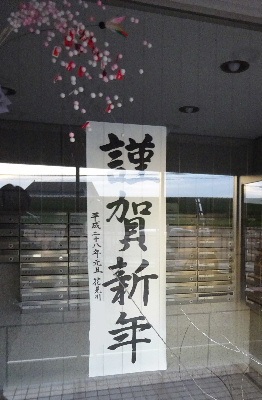 謹賀新年
平成二十八年元旦 花見川